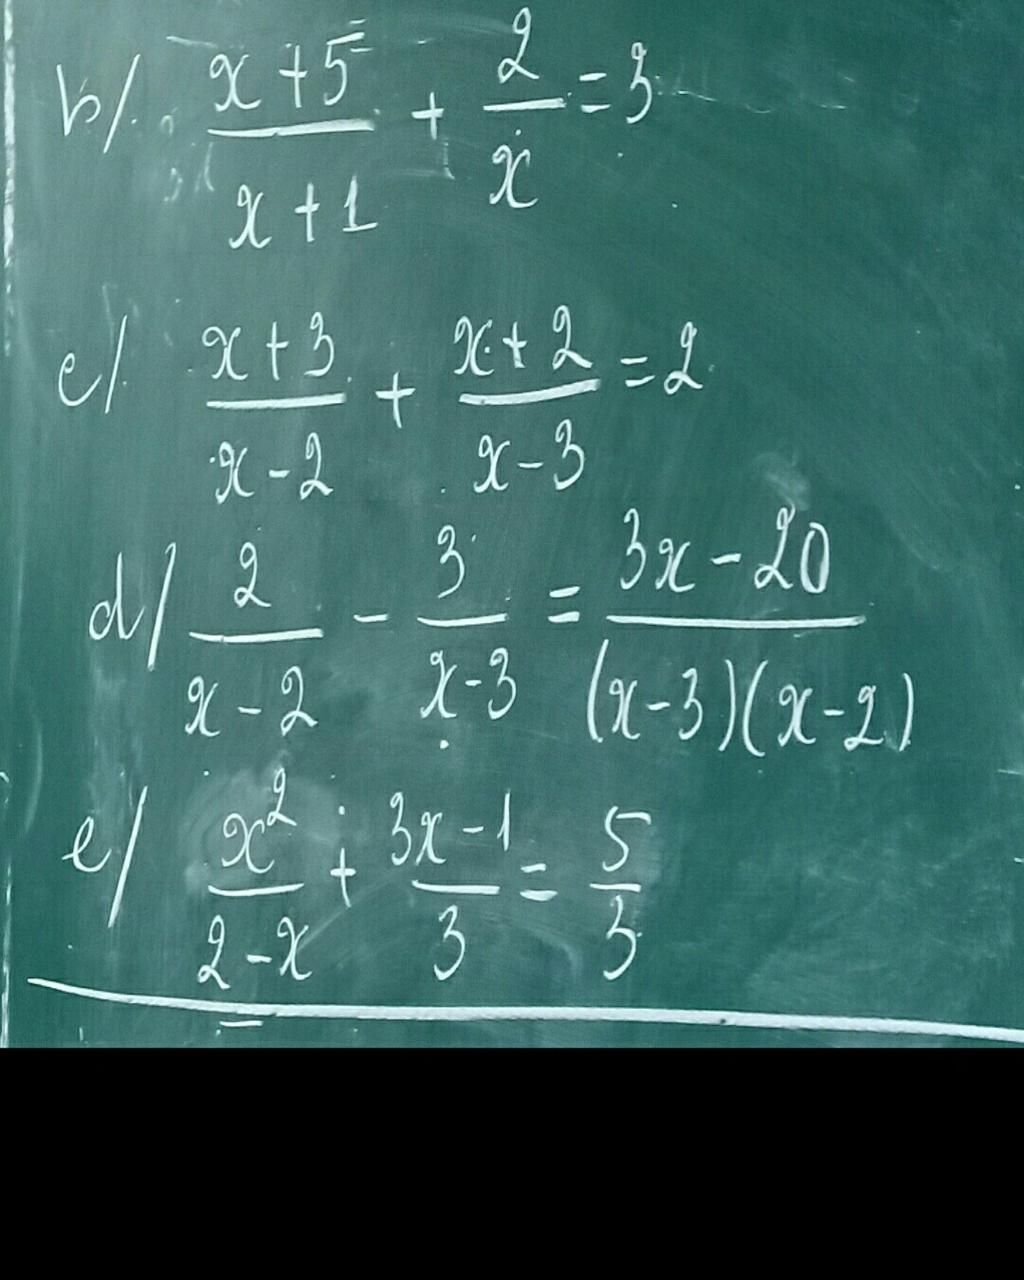 b/ (x+5)/(x+1) + 2/x = 3
c/ (x+3)/(x-2) + (x+2)/(x-3) = 2
d/ 2/(x-2) - 3/(x-3) = (3x-20)/((x-3)(x-2))
e/ x²/(2-x) + (3x-1)/3 = 5/3